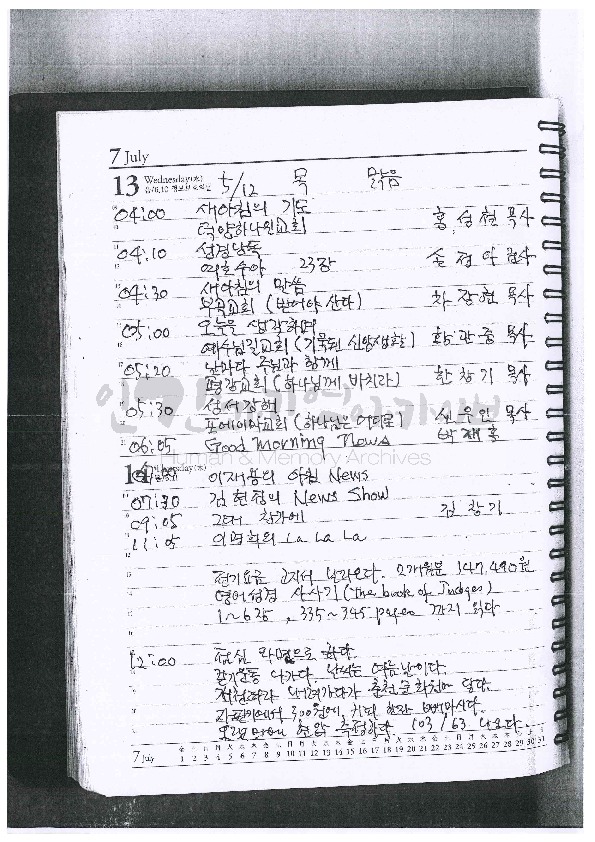 7 July
13 Wednesday(水) 5/12 목 맑음
04:00 새아침의 기도
덕양하나원교회 홍성현 목사
04:10 성경낭독
여호수아 23장
04:30 새아침의 말씀
부곡교회 (받아야 산다) 차장현 목사
05:00 오늘을 생각하며
예수님길교회 (거룩된 신앙생활) 목사
05:20 날마다 주님과 함께
평강교회 (하나님께 바치라) 한창기 목사
05:30 성서강해
포에이아교회 (하나님은 어디로) 목사
06:05 Good Morning News 박재홍
Human & Memory Archives
14
이재용의 아침 News
07:30 김현정의 News Show
09:05 그대 창가에 김창기
11:05 이명희의 La La La
전기요금 고지서 날라오다. 2개월분 147,490원
영어성경 사사기 (The book of Judges)
1~6장, 335~345 pages 까지 읽다
12:00 점심 라면으로 하다
걷기운동 나가다. 날씨는 여름날이다.
내려가다가 춘천문화원에 닿다
자판기에서 300원에 커피 한잔 빼마시다.
오랜만에 혈압 측정하다 103/63 나오다.
7 July 1 2 3 4 5 6 7 8 9 10 11 12 13 14 15 16 17 18 19 20 21 22 23 24 25 26 27 28 29 30 31